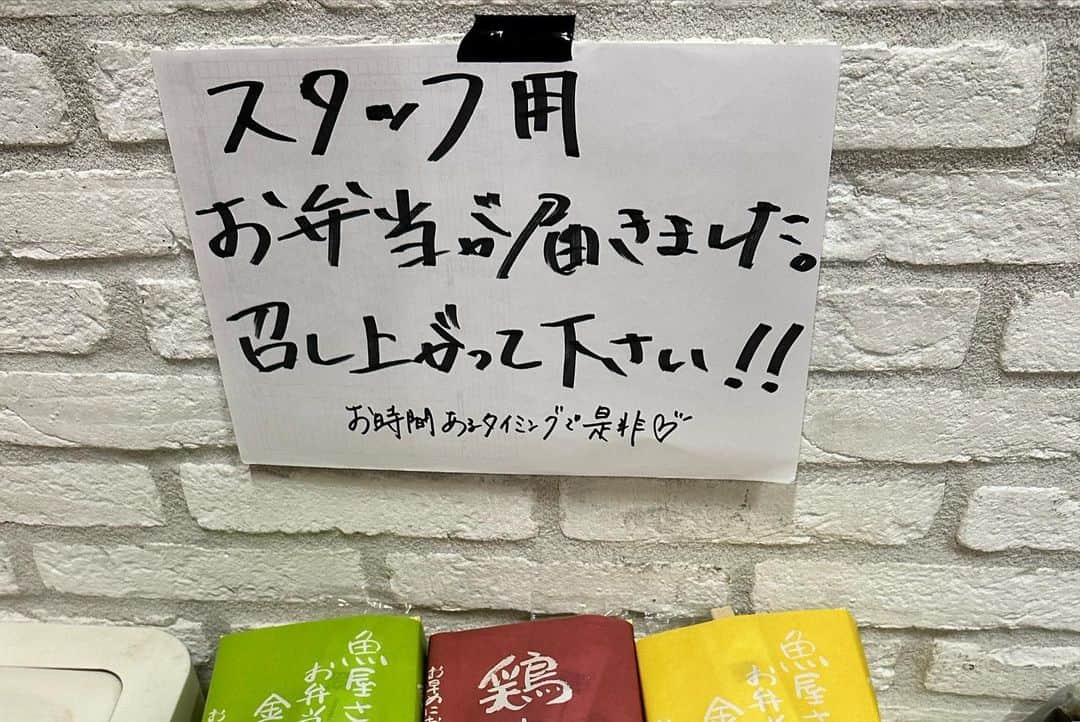 スタッフ用
お弁当が届きました。
召し上がって下さい!!
お時間あるタイミングで是非♡
魚屋さ
お弁当
金
鶏
お早めに
魚屋さ
お弁当
金